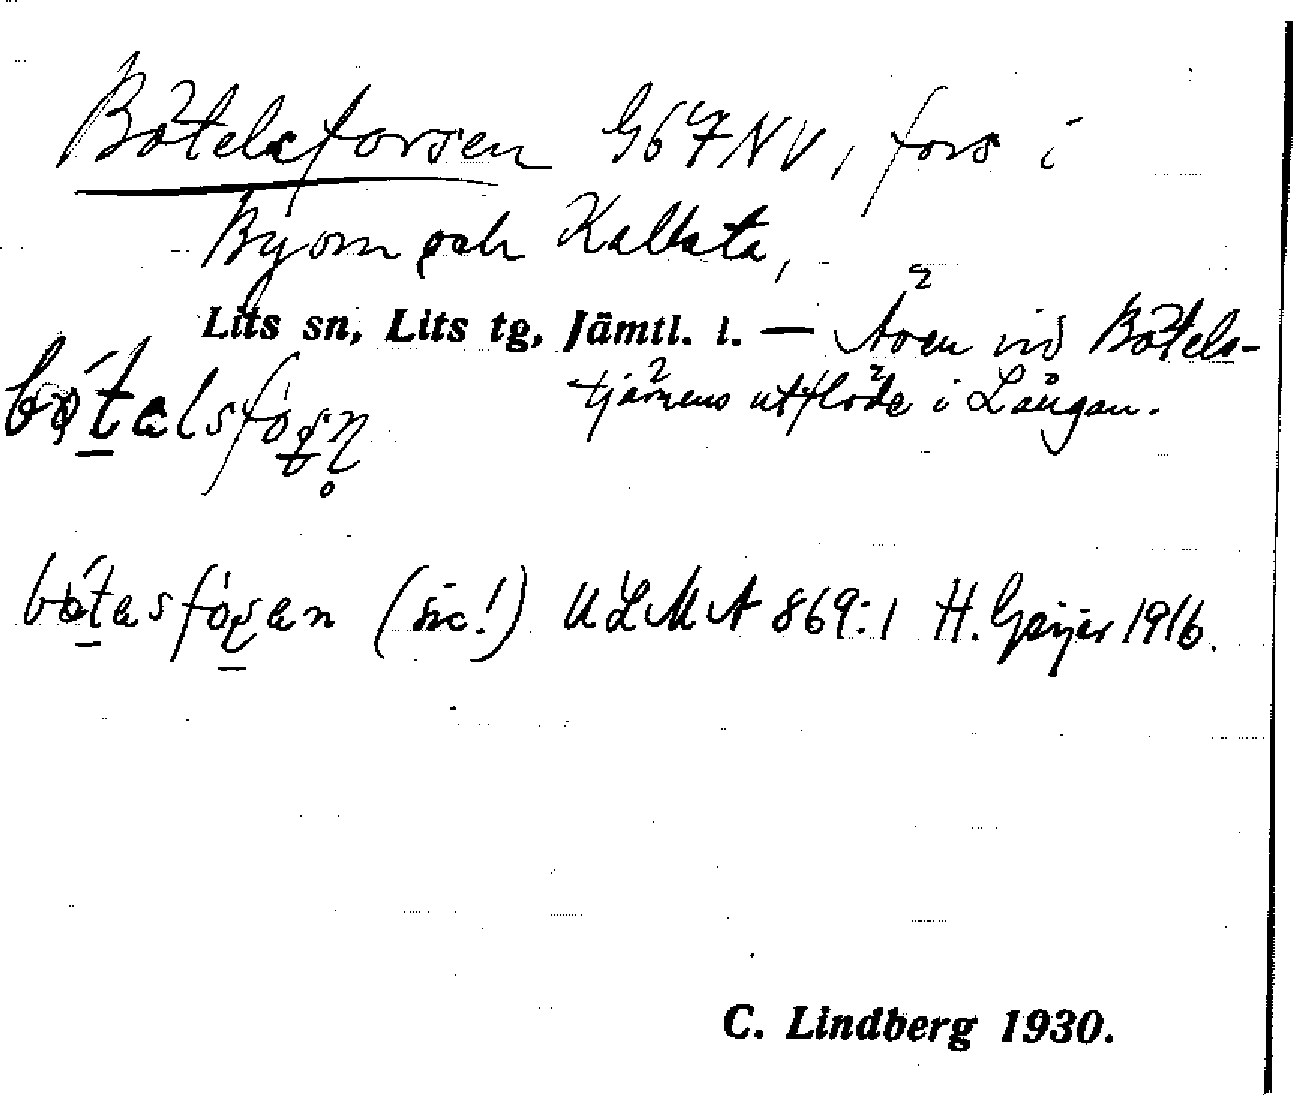 Båtelsforsen G67NV, fors i
Byom och Kallsta,
Lits sn, Lits tg, Jämtl. l. — Även vid Båtels-
tjärnens utflöde i Långan.
bǿtalsfórn̥
bǿtasfóran (sic!) ULMA 869:1 H. Geijer 1916.
C. Lindberg 1930.